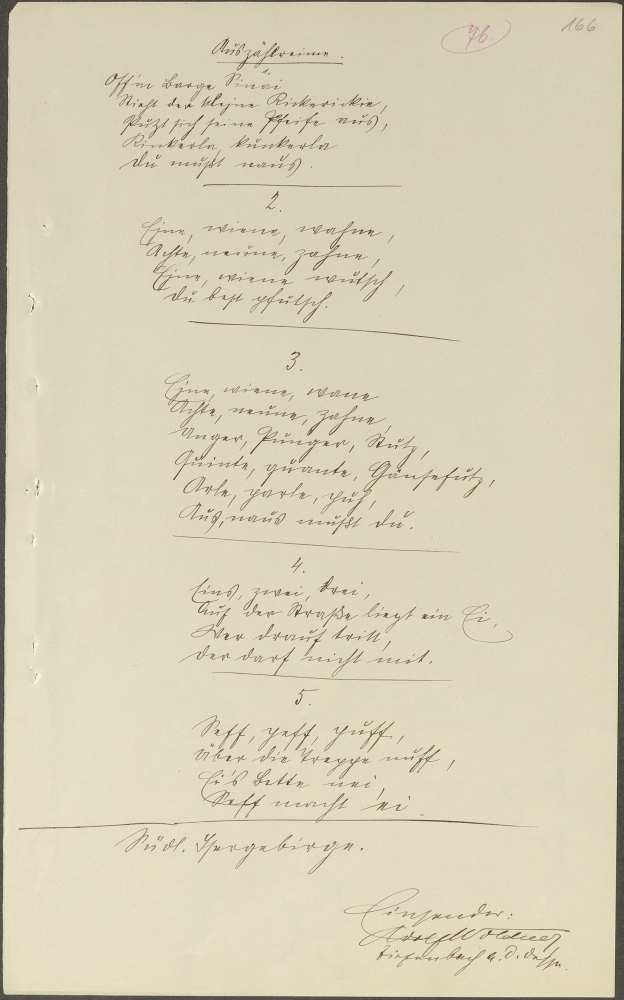 76.
166
Auszählreime.
1.
Off'm Barge Sinai
Sieht der kleine Kickerickie,
Putzt sich seine Pfeife aus,
Kinkerla, kunkerla
du mußt naus.
2.
Eine, wiene, wahne,
Achte, neune, zahne,
Eine, wiene wutsch,
du best pfutsch.
3.
Eine, wiene, wane
Achte, neune, zahne,
Anger, Punger, Stutz,
Quinte, quante, Gänsefutz,
Arle, parle, puh,
Aus, naus mußt du.
4.
Eins, zwei, drei,
Auf der Straße liegt ein Ei,
Wer drauf tritt,
der darf nicht mit.
5.
Seff, peff, puff,
Über die Treppe nuff,
Ei's Bette nei,
Seff macht ei.
Südl. Isergebirge.
Einsender:
Adolf
Tiefenbach a. d. Desse.